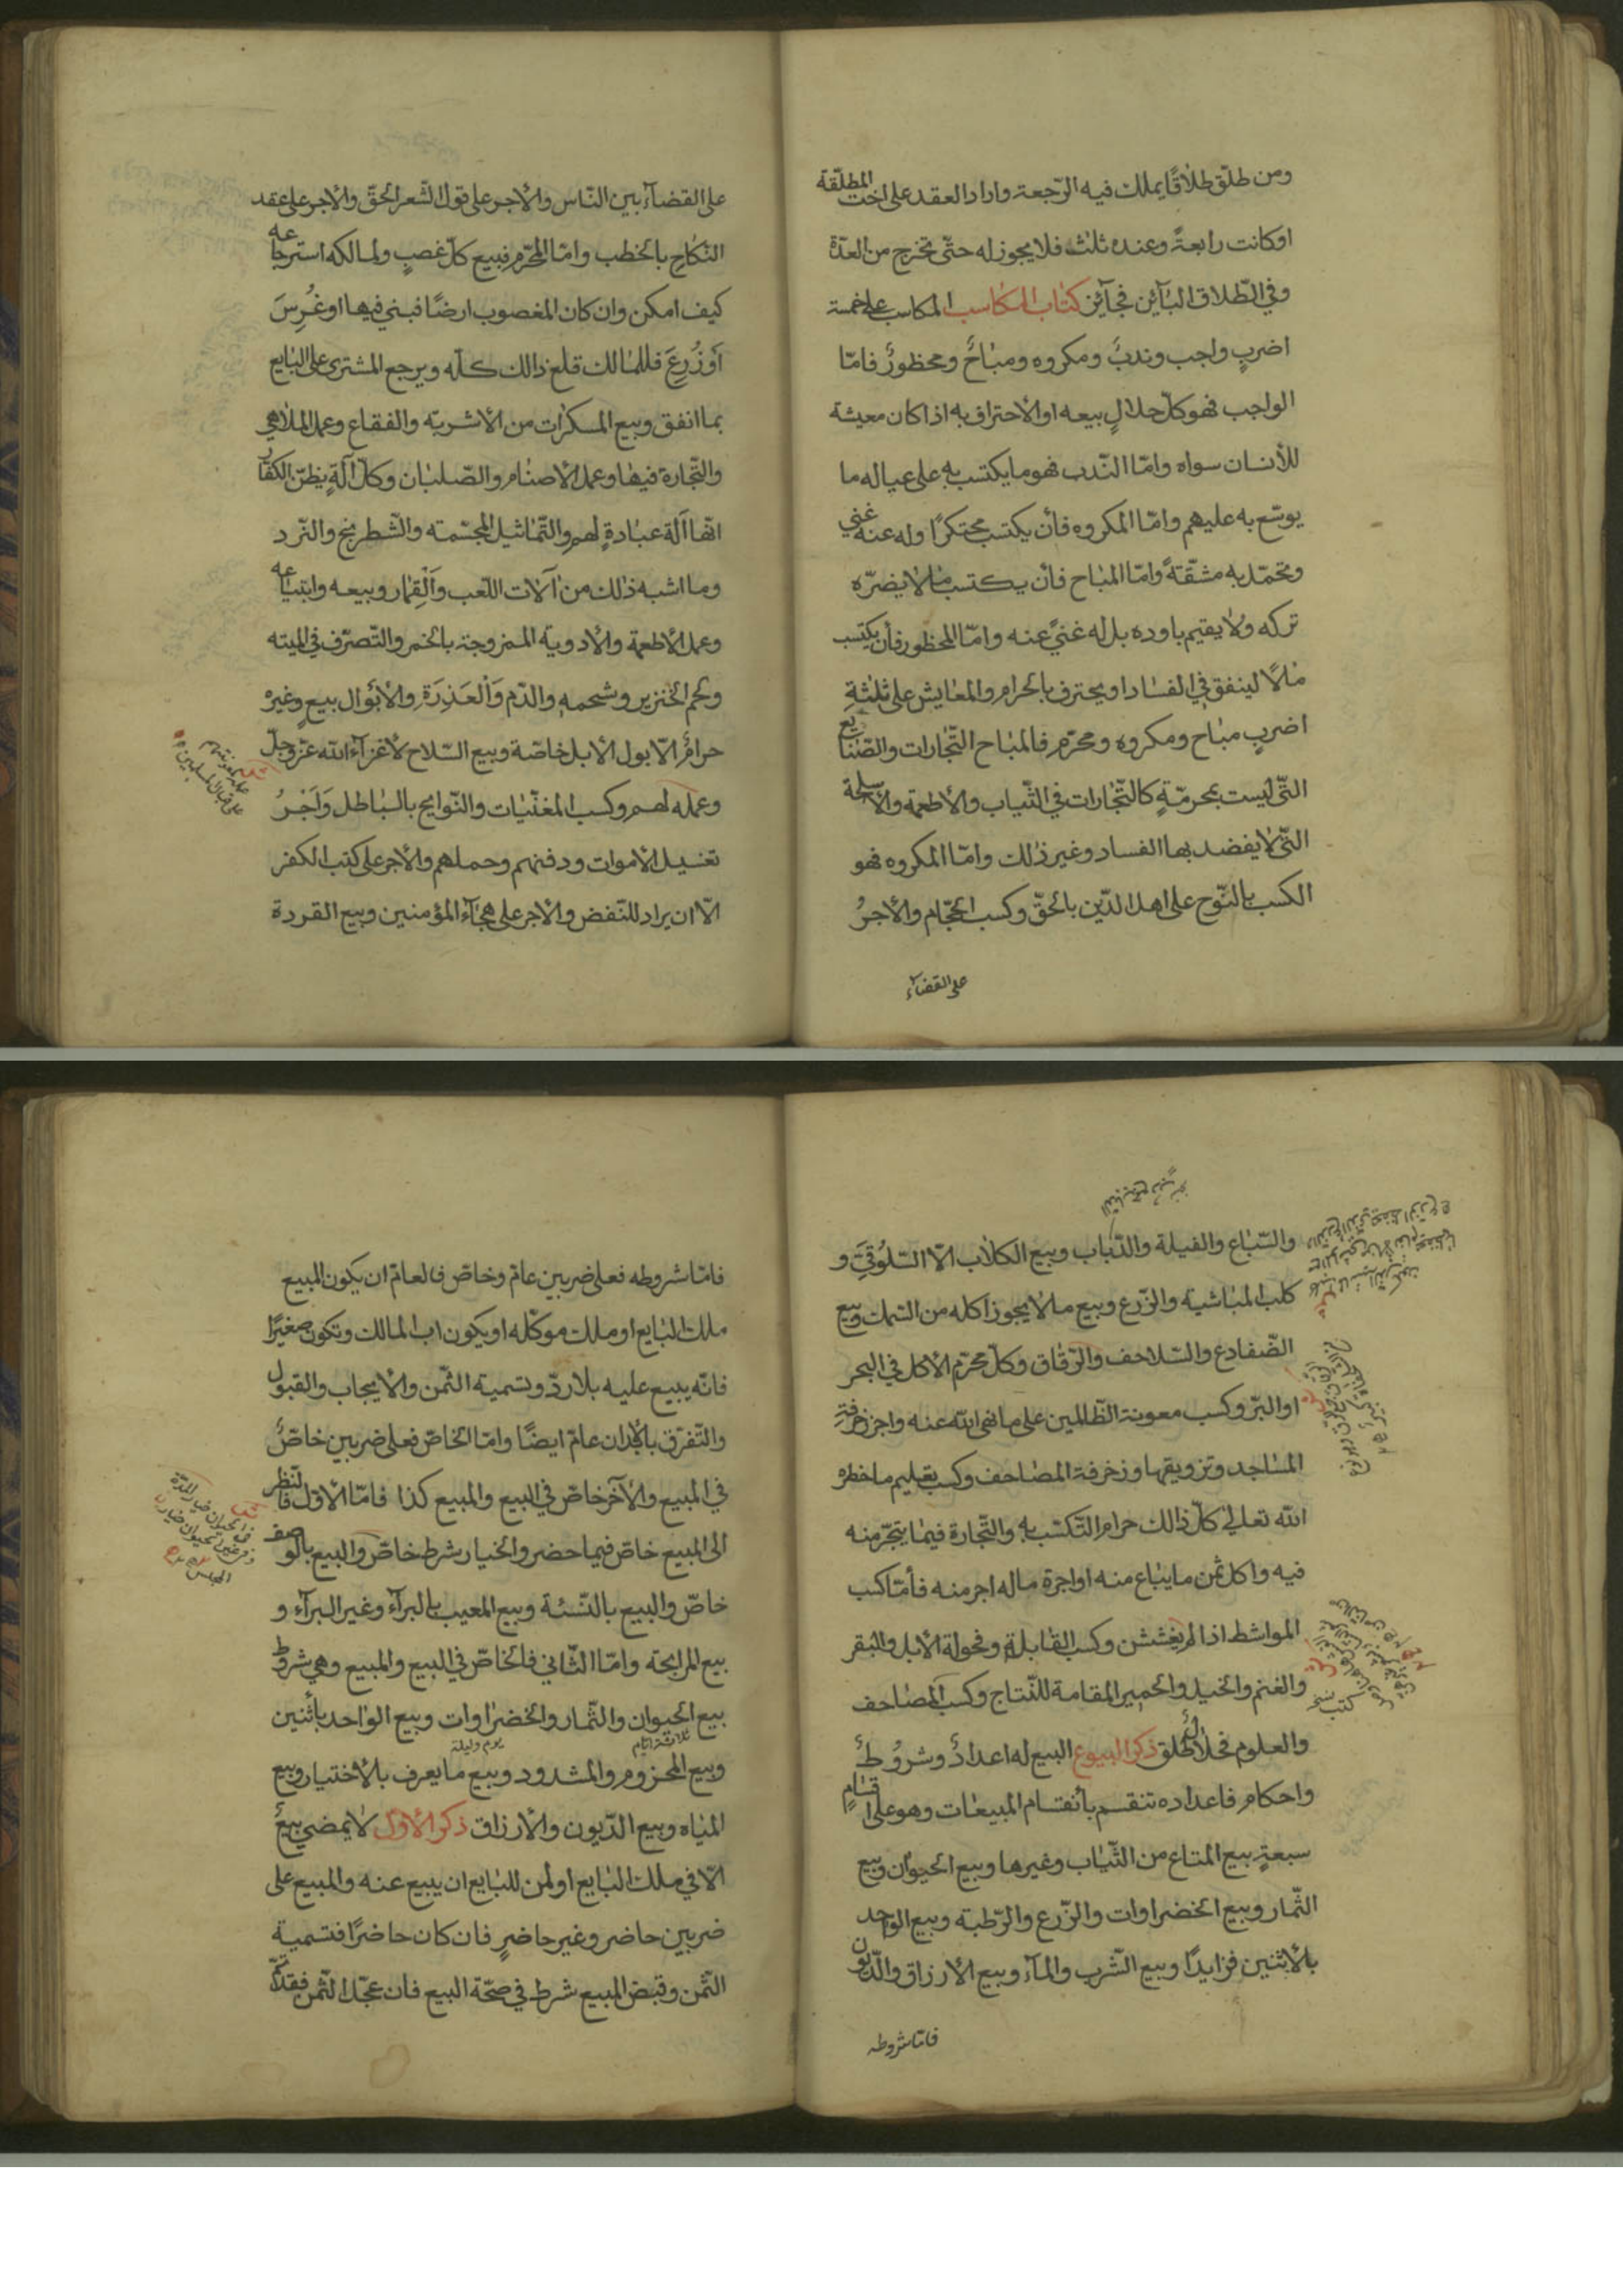 ومن طلّق طلاقًا يملك فيه الرّجعة واراد العقد على اخت المطلّقة
او كانت رابعةً وعنده ثلث فلا يجوز له حتّى تخرج من العدّة
وفي الطّلاق البآئن فجآئز كتاب المكاسب المكاسب على خمسة
اضربٍ واجب وندبٌ ومكروه ومباحٌ ومحظورٌ فامّا
الواجب فهو كلّ حلالٍ بيعه او الأحتراف به اذا كان معيشة
للأنسان سواه وامّا النّدب فهو ما يكتسب به على عياله ما
يوسّع به عليهم وامّا المكروه فأن يكتسب محتكرًا وله عنه غني
وتحمّل به مشقّةً وامّا المباح فأن يكتسب ما لا يضرّه
تركه ولا يقيم باوده بل له غنيً عنه وامّا المحظور فأن يكتسب
مالاً لينفق في الفساد او يحترف بالحرام والمعايش على ثلثةِ
اضربٍ مباح ومكروه ومحرّم فالمباح التّجارات والصّنايع
الّتي ليست بمحرمّةٍ كالتّجارات في الثّياب والأطعمة والأسلحة
الّتي لا يقصد بها الفساد وغير ذلك وامّا المكروه فهو
الكسب بالنّوح على اهل الدّين بالحقّ وكسب الحجّام والأجرُ
على القضآء
على القضآء بين النّاس والأجر على قول الشّعر الحقّ والأجر على عقد
النّكاح بالخطب وامّا المحرّم فبيع كلّ غصبٍ ولمالكه استرجاعه
كيف امكن وان كان المغصوب ارضًا فبني فيها او غُرِسَ
أو زُرِعَ فللمالك قلع ذالك كلّه ويرجع المشترى على البايع
بما انفق وبيع المسكرات من الاشربة والفقاع وعمل الملاهي
والتّجارة فيها وعمل الأصنام والصّلبان وكلّ آلةٍ يظنّ الكفّار
انّها آلة عبادةٍ لهم والتّماثيل المجسّمة والشّطرنج والنّرد
وما اشبه ذلك من آلات اللّعب والقِمار وبيعه وابتياعه
وعمل الأطعمة والأدوية الممزوجة بالخمر والتّصرّف في الميته
ولحم الخنزير وشحمه والدّم والعَذِرَة والأبوال ببيعٍ وغيره
حرامٌ الّا بول الأبل خاصّة وبيع السّلاح لأعدآء الله عزّ وجلّ
وعمله لهم وكسب المغنّيات والنّوايح بالباطل وَأَجْرُ
تغسيل الأموات ودفنهم وحملهم والأجر على كتب الكفر
الّا ان يراد للنّقض والأجر على هجآء المؤمنين وبيع القردة
والسّباع والفيلة والدّباب وبيع الكلاب الّا السّلُوقيّ و
كلب الماشية والزّرع وبيع ما لا يجوز اكله من السّمك وبيع
الضّفادع والسّلاحف والرّقاق وكلّ محرّم الأكل في البحر
او البرّ وكسب معونة الظّالمين على ما نهى الله عنه واجر زخرفةِ
المساجد وتزويقها وزخرفة المصاحف وكسب تعليم ما حظره
الله تعالى كلّ ذالك حرام التّكسّب به والتّجارة فيما يتّجر منه
فيه واكل ثمن ما يباع منه او اجرة ما له اجر منه فأمّا كسب
المواشط اذا لم يغششن وكسب القابلة وفحولة الأبل والبقر
والغنم والخيل والحمير المقامة للنّتاج وكسب المصاحف
والعلوم فحلالٌ طلق ذكر البيوع البيع له اعدادٌ وشروُطٌ
واحكام فاعداده تنقسم بأنقسام المبيعات وهو على اقسامٍ
سبعةٍ بيع المتاع من الثّياب وغيرها وبيع الحيوان وبيع
الثّمار وبيع الخضراوات والزّرع والرّطبة وبيع الواحد
بالأثنين فزايدًا وبيع الشّرب والمآء وبيع الأرزاق والدّيون
فامّا شروطه
فامّا شروطه فعلى ضربين عامّ وخاصّ فالعامّ ان يكون المبيع
ملك البايع او ملك موكّله او يكون اب المالك وتكون صغيرًا
فانّه يبيع عليه بلا ردّ وتسمية الثّمن والأيجاب والقبول
والتّفرّق بالأبدان عامّ ايضًا وامّا الخاصّ فعلى ضربين خاصٌّ
في المبيع والآخر خاصّ في البيع والمبيع كذا فامّا الأوّل فالنّظر
الى المبيع خاصّ فيما حضر والخيار بشرط خاصّ والبيع بالوصف
خاصّ والبيع بالنّسئة وبيع المعيب بالبرآء وغير البرآء و
بيع المرابحة وامّا الثّاني فالخاصّ في البيع والمبيع وهي شروط
بيع الحيوان والثّمار والخضراوات وبيع الواحد بأثنين
ثلاثة ايّام يوم وليلة
وبيع المحزوم والمشدود وبيع ما يعرف بالأختيار وبيع
المياه وبيع الدّيون والأرزاق ذكر الأوّل لا يمضي بيعٌ
الّا في ملك البايع او لمن للبايع ان يبيع عنه والمبيع على
ضربين حاضر وغير حاضرٍ فان كان حاضرًا فتسمية
الثّمن وقبض المبيع شرط في صحّة البيع فان عجّل الثّمن فقد تمّ